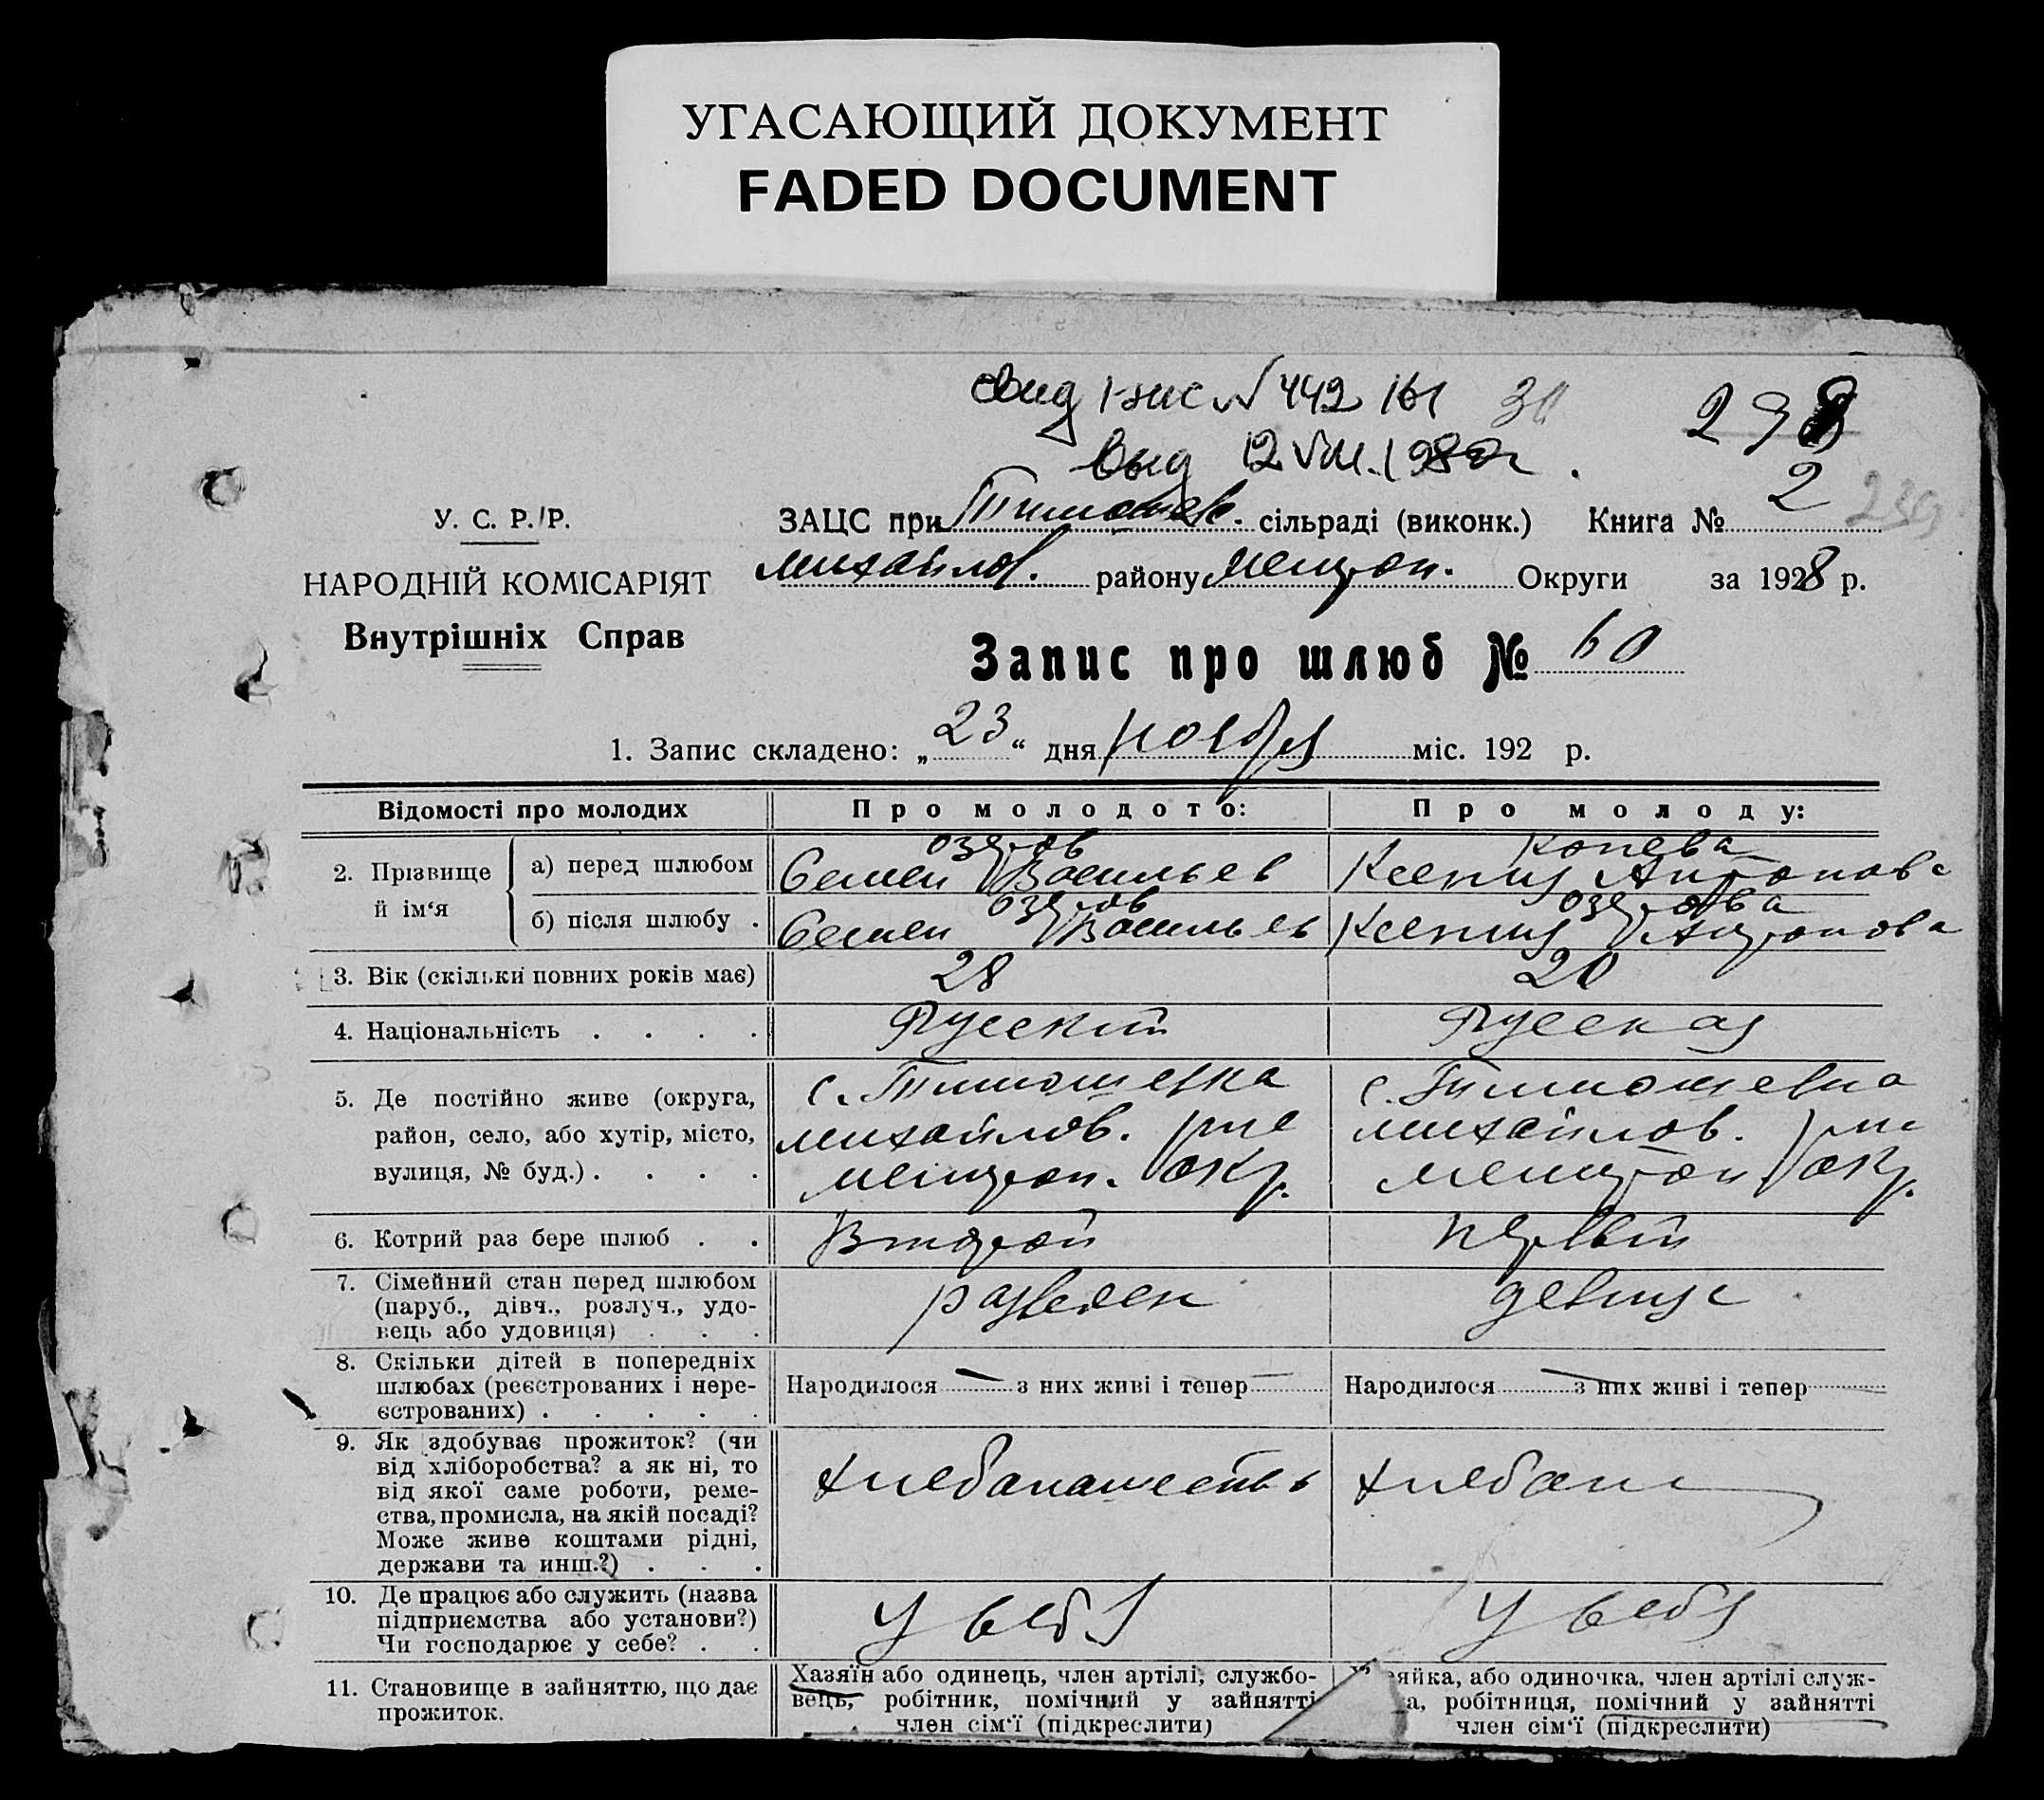 УГАСАЮЩИЙ ДОКУМЕНТ
FADED DOCUMENT
свид I-жс № 442 161 30 298
выд 12 VIII. 1982г.
У. С. Р. Р.
НАРОДНІЙ КОМІСАРІЯТ
Внутрішніх Справ
ЗАЦС при Тимошев. сільраді (виконк.) Книга № 2 239
михайлов. району мелитоп. Округи за 1928 р.
Запис про шлюб № 60
1. Запис складено: „23“ дня ноября міс. 192 р.
Відомості про молодих Про молодого: Про молоду:
2. Прізвище й ім‘я
а) перед шлюбом Озеров Семен Васильев Конева Ксения Антонова
б) після шлюбу . Озеров Семен Васильев Озерова Ксения Антонова
3. Вік (скільки повних років має) 28 20
4. Національність . . . . Русский Русская
5. Де постійно живе (округа,
район, село, або хутір, місто,
вулиця, № буд.) . . . .
с. Тимошевка
михайлов. рне
мелитоп. окр.
с. Тимошевка
михайлов. рне
мелитоп окр.
6. Котрий раз бере шлюб . . Второй первый
7. Сімейний стан перед шлюбом
(паруб., дівч., розлуч., удо-
вець або удовиця) . . .
разведен девица
8. Скільки дітей в попередніх
шлюбах (реєстрованих і нере-
єстрованих) . . . . .
Народилося — з них живі і тепер — Народилося — з них живі і тепер
9. Як здобуває прожиток? (чи
від хліборобства? а як ні, то
від якої саме роботи, реме-
ства, промисла, на якій посаді?
Може живе коштами рідні,
держави та инш.?) . . .
хлебопашество хлебопаш
10. Де працює або служить (назва
підприємства або установи?)
Чи господарює у себе? . .
У себя У себя
11. Становище в зайняттю, що дає
прожиток.
Хазяїн або одинець, член артілі, службо-
вець, робітник, помічний у зайнятті
член сім‘ї (підкреслити)
яйка, або одиночка, член артілі служ-
а, робітниця, помічний у зайнятті
член сім‘ї (підкреслити)